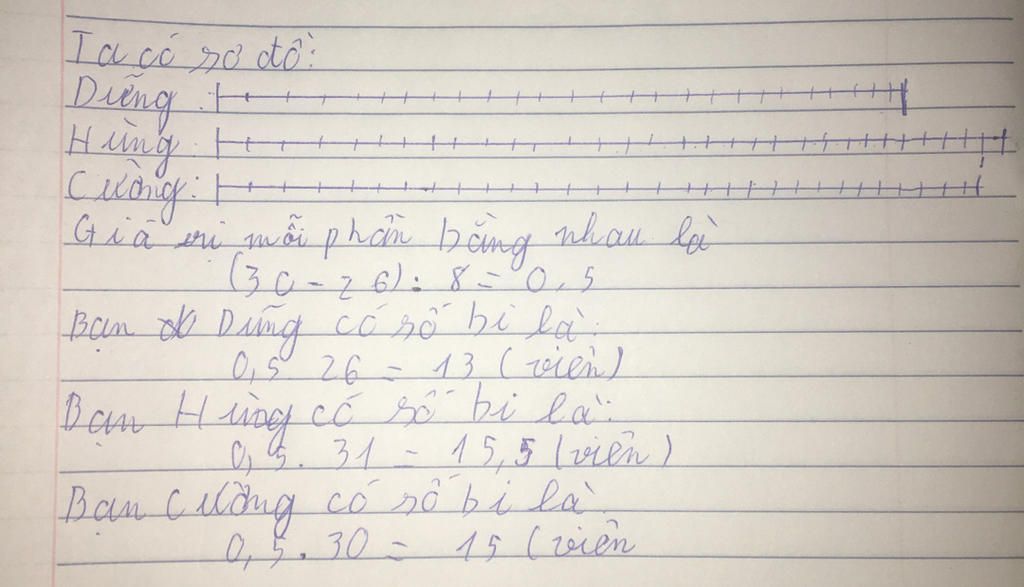 Ta có sơ đồ:
Dũng :
Hùng :
Cường :
Giá trị mỗi phần bằng nhau là
(30 - 26) : 8 = 0,5
Bạn Dũng có số bi là:
0,5 26 = 13 (viên)
Bạn Hùng có số bi là:
0,5. 31 = 15,5 (viên)
Bạn Cường có số bi là
0,5. 30 = 15 (viên